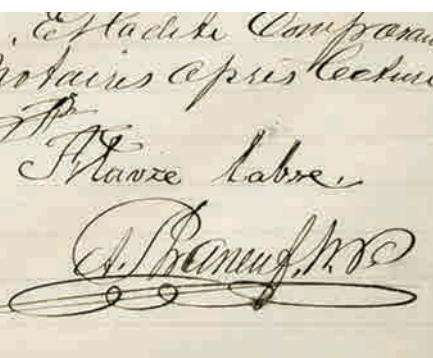 , Et ladite Comparan
notaires après lecture
Flavze Labre.
A. Phaneuf, N.P.